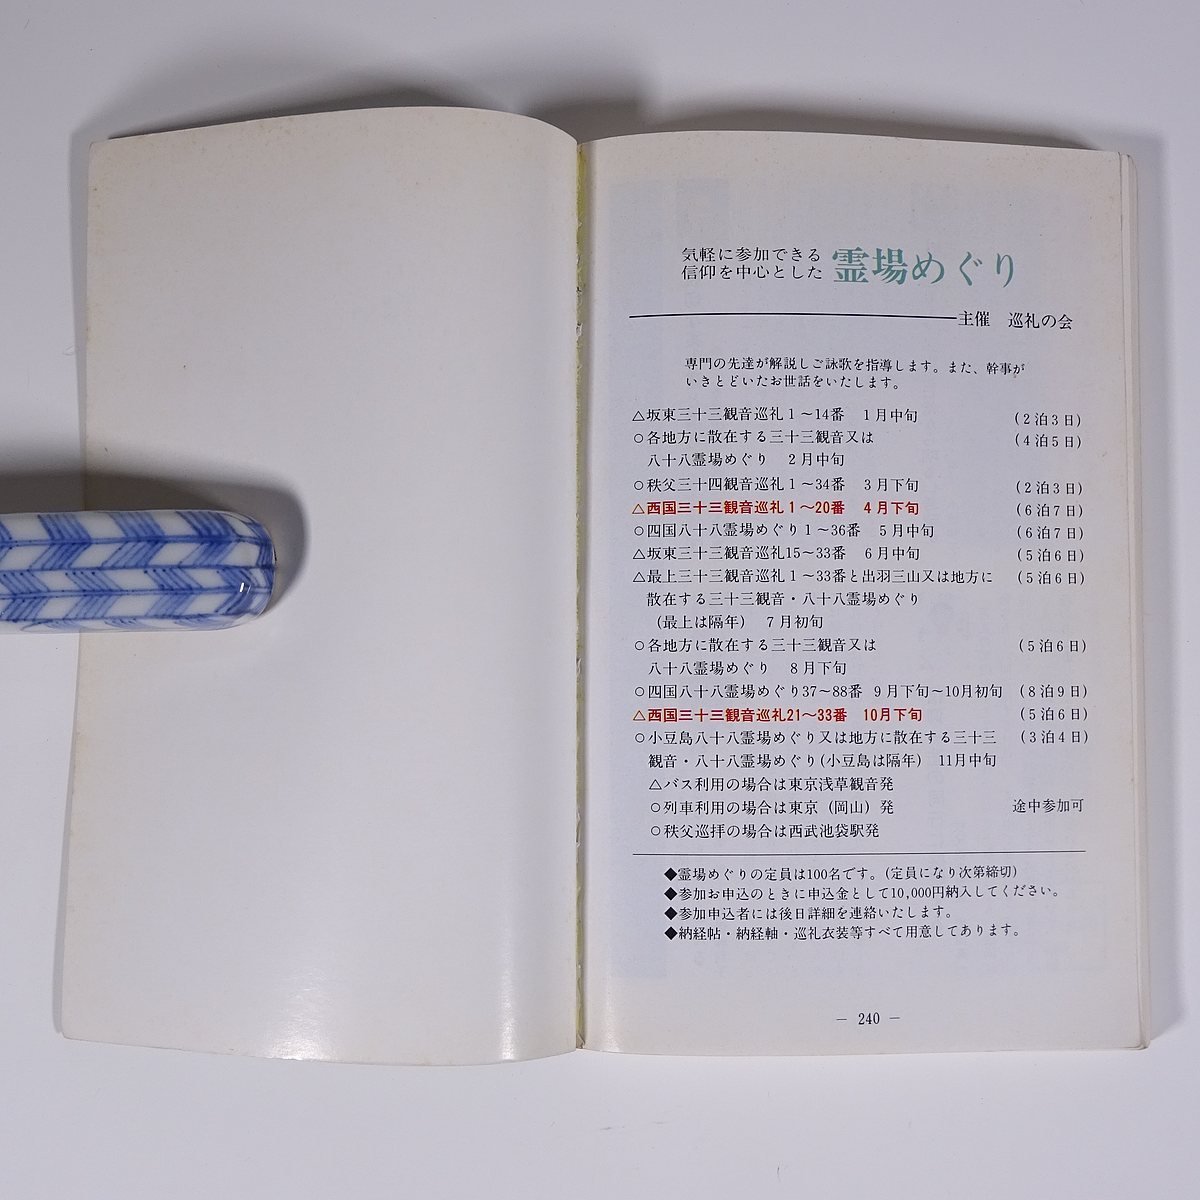 気軽に参加できる
信仰を中心とした
霊場めぐり
主催 巡礼の会
専門の先達が解説しご詠歌を指導します。また、幹事が
いきとどいたお世話をいたします。
△坂東三十三観音巡礼1～14番 1月中旬 (2泊3日)
○各地方に散在する三十三観音又は (4泊5日)
八十八霊場めぐり 2月中旬
○秩父三十四観音巡礼1～34番 3月下旬 (2泊3日)
△西国三十三観音巡礼1～20番 4月下旬 (6泊7日)
○四国八十八霊場めぐり1～36番 5月中旬 (6泊7日)
△坂東三十三観音巡礼15～33番 6月中旬 (5泊6日)
△最上三十三観音巡礼1～33番と出羽三山又は地方に (5泊6日)
散在する三十三観音・八十八霊場めぐり
(最上は隔年) 7月初旬
○各地方に散在する三十三観音又は (5泊6日)
八十八霊場めぐり 8月下旬
○四国八十八霊場めぐり37～88番 9月下旬～10月初旬 (8泊9日)
△西国三十三観音巡礼21～33番 10月下旬 (5泊6日)
○小豆島八十八霊場めぐり又は地方に散在する三十三 (3泊4日)
観音・八十八霊場めぐり(小豆島は隔年) 11月中旬
△バス利用の場合は東京浅草観音発
○列車利用の場合は東京(岡山)発 途中参加可
○秩父巡拝の場合は西武池袋駅発
◆霊場めぐりの定員は100名です。(定員になり次第締切)
◆参加お申込のときに申込金として10,000円納入してください。
◆参加申込者には後日詳細を連絡いたします。
◆納経帖・納経軸・巡礼衣装等すべて用意してあります。
— 240 —